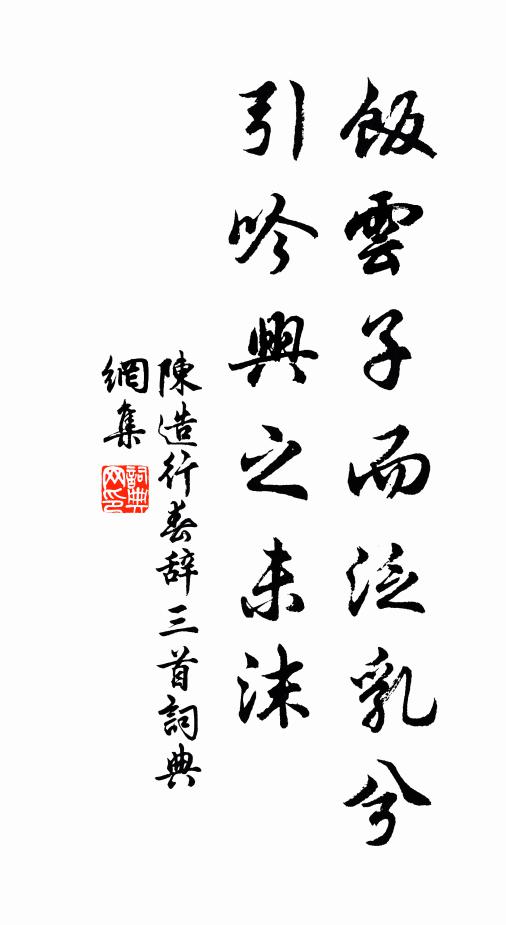 飯雲子而泛乳兮
引吟興之未沫
陳造行春辞三首詞典
網集
詞典
網印